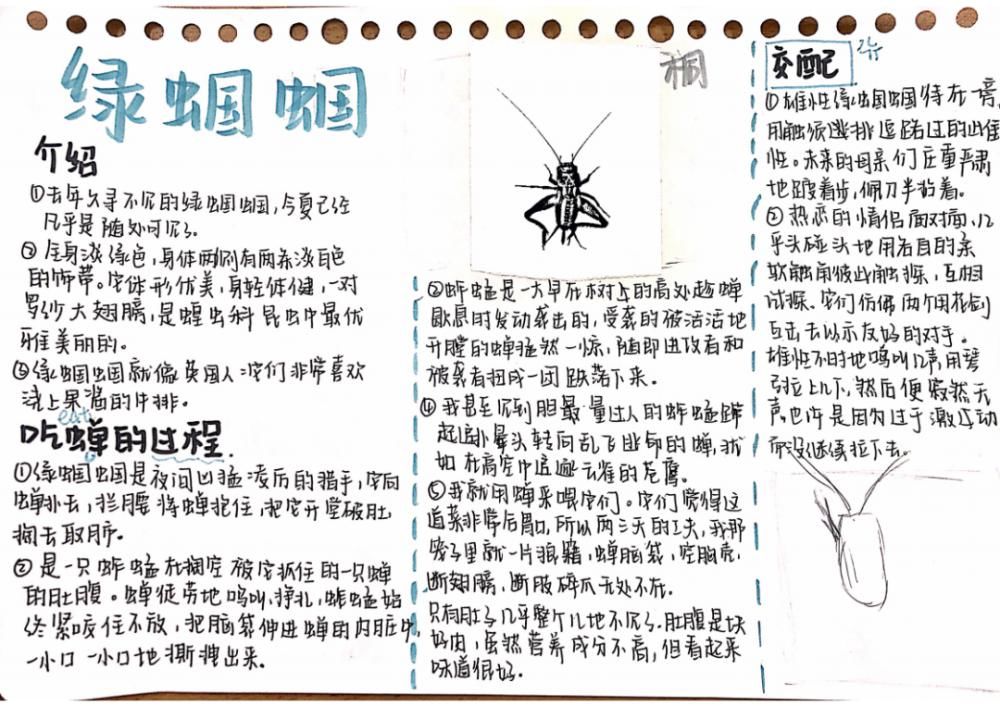 绿蝈蝈
介绍
①去年久寻不见的绿蝈蝈,今夏已经
几乎是随处可见了。
②全身淡绿色,身体两侧有两条淡白色
的饰带。它体形优美,身轻体健,一对
罗纱大翅膀,是蝗虫科昆虫中最优
雅美丽的。
③绿蝈蝈就像英国人它们非常喜欢
浇上果酱的牛排。
eat
吃蝉的过程.
①绿蝈蝈是夜间凶猛凌后的猎手,它向
蝉扑去,拦腰将蝉抱住,把它开堂破肚,
掏去取脏。
②是一只蚱蜢在掏空被它抓住的一只蝉
的肚腹。蝉徒劳地鸣叫,挣扎,蚱蜢始
终紧咬住不放,把脑袋伸进蝉的内脏中,
一小口一小口地撕拽出来。
③蚱蜢是一大早在树上的高处趁蝉
歇息时发动袭击的,受袭的被活活地
开膛的蝉猛然一惊,随即进攻者和
被袭者扭成一团跌落下来。
④我甚至见到胆最量过人的蚱蜢蹿
起追扑晕头转向乱飞逃命的蝉,犹
如在高空中追逐云雀的苍鹰。
⑤我就用蝉来喂它们。它们觉得这
道菜非常合胃口,所以两三天的工夫,我那
笼子里就一片狼籍,蝉脑袋,空胸壳,
断翅膀,断肢碎爪无处不在,
只有肚子几乎整个儿地不见了.肚腹是块
好肉,虽然营养成分不高,但看起来
味道很好。
交配
①雄性绿蝈蝈待在一旁,
用触须挑逗路过的雌
性。未来的母亲们庄重严肃
地踱着步,佩刀半抬着。
②热恋的情侣面对面,几
乎头碰头地用各自的柔
软触角彼此触探,互相
试探。它们仿佛两个用花剑
互击去以示友好的对手。
雄性不时地鸣叫几声,用琴
弓拉上几下,然后便寂然无
声,也许是因为过于激动
而没继续拉下去。